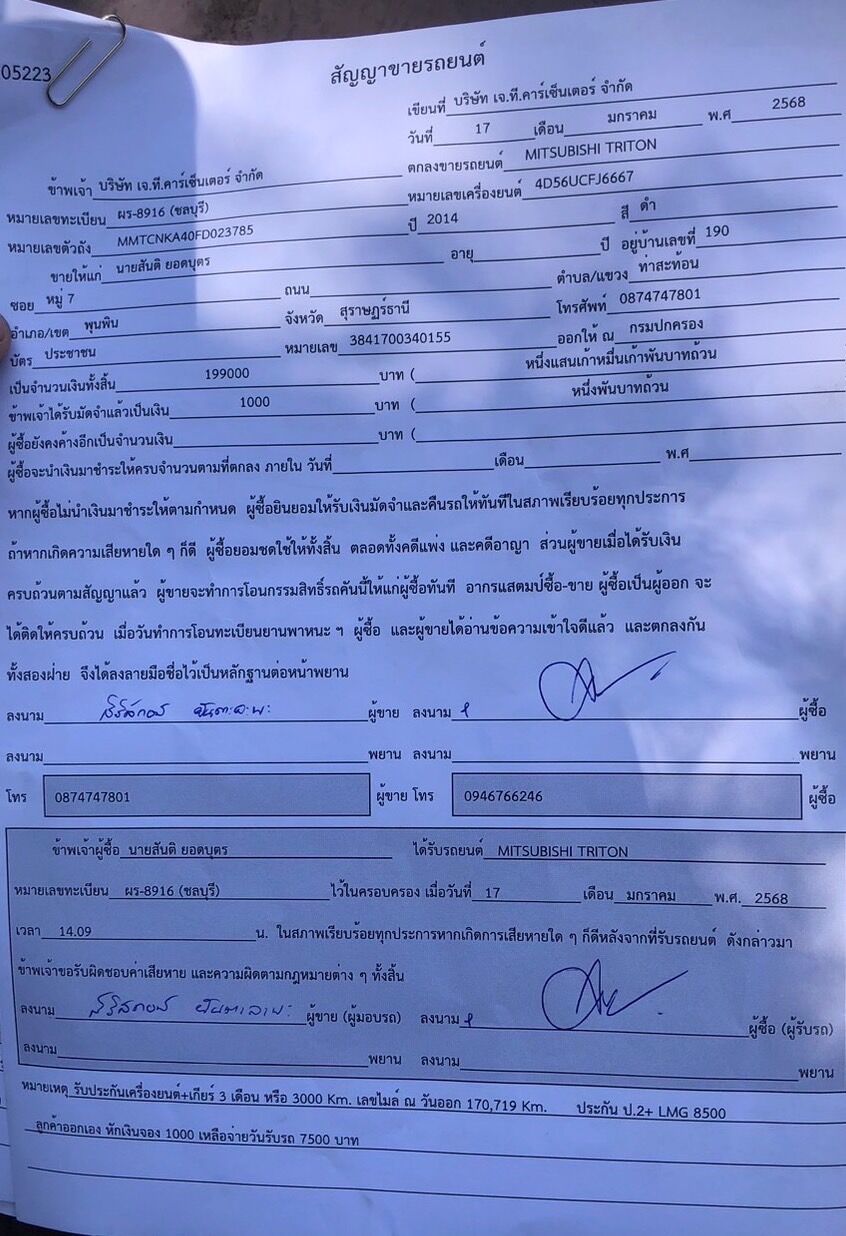 05223
สัญญาขายรถยนต์
เขียนที่ บริษัท เจ.ที.คาร์เซ็นเตอร์ จำกัด
วันที่ 17 เดือน มกราคม พ.ศ 2568
ข้าพเจ้า บริษัท เจ.ที.คาร์เซ็นเตอร์ จำกัด ตกลงขายรถยนต์ MITSUBISHI TRITON
หมายเลขทะเบียน ผร-8916 (ชลบุรี) หมายเลขเครื่องยนต์ 4D56UCFJ6667
หมายเลขตัวถัง MMTCNKA40FD023785 ปี 2014 สี ดำ
ขายให้แก่ นายสันติ ยอดบุตร อายุ ปี อยู่บ้านเลขที่ 190
ซอย หมู่ 7 ถนน ตำบล/แขวง ท่าสะท้อน
อำเภอ/เขต พุนพิน จังหวัด สุราษฎร์ธานี โทรศัพท์ 0874747801
บัตร ประชาชน หมายเลข 3841700340155 ออกให้ ณ กรมปกครอง
เป็นจำนวนเงินทั้งสิ้น 199000 บาท ( หนึ่งแสนเก้าหมื่นเก้าพันบาทถ้วน
ข้าพเจ้าได้รับมัดจำแล้วเป็นเงิน 1000 บาท ( หนึ่งพันบาทถ้วน
ผู้ซื้อยังคงค้างอีกเป็นจำนวนเงิน บาท (
ผู้ซื้อจะนำเงินมาชำระให้ครบจำนวนตามที่ตกลง ภายใน วันที่ เดือน พ.ศ
หากผู้ซื้อไม่นำเงินมาชำระให้ตามกำหนด ผู้ซื้อยินยอมให้รับเงินมัดจำและคืนรถให้ทันทีในสภาพเรียบร้อยทุกประการ
ถ้าหากเกิดความเสียหายใด ๆ ก็ดี ผู้ซื้อยอมชดใช้ให้ทั้งสิ้น ตลอดทั้งคดีแพ่ง และคดีอาญา ส่วนผู้ขายเมื่อได้รับเงิน
ครบถ้วนตามสัญญาแล้ว ผู้ขายจะทำการโอนกรรมสิทธิ์รถคันนี้ให้แก่ผู้ซื้อทันที อากรแสตมป์ซื้อ-ขาย ผู้ซื้อเป็นผู้ออก จะ
ได้ติดให้ครบถ้วน เมื่อวันทำการโอนทะเบียนยานพาหนะ ฯ ผู้ซื้อ และผู้ขายได้อ่านข้อความเข้าใจดีแล้ว และตกลงกัน
ทั้งสองฝ่าย จึงได้ลงลายมือชื่อไว้เป็นหลักฐานต่อหน้าพยาน
ลงนาม ผู้ขาย ลงนาม ผู้ซื้อ
ลงนาม พยาน ลงนาม พยาน
โทร 0874747801 ผู้ขาย โทร 0946766246 ผู้ซื้อ
ข้าพเจ้าผู้ซื้อ นายสันติ ยอดบุตร ได้รับรถยนต์ MITSUBISHI TRITON
หมายเลขทะเบียน ผร-8916 (ชลบุรี) ไว้ในครอบครอง เมื่อวันที่ 17 เดือน มกราคม พ.ศ. 2568
เวลา 14.09 น. ในสภาพเรียบร้อยทุกประการหากเกิดการเสียหายใด ๆ ก็ดีหลังจากที่รับรถยนต์ ดังกล่าวมา
ข้าพเจ้าขอรับผิดชอบค่าเสียหาย และความผิดตามกฎหมายต่าง ๆ ทั้งสิ้น
ลงนาม ผู้ขาย (ผู้มอบรถ) ลงนาม ผู้ซื้อ (ผู้รับรถ)
ลงนาม พยาน ลงนาม พยาน
หมายเหตุ รับประกันเครื่องยนต์+เกียร์ 3 เดือน หรือ 3000 Km. เลขไมล์ ณ วันออก 170,719 Km. ประกัน ป.2+ LMG 8500
ลูกค้าออกเอง หักเงินจอง 1000 เหลือจ่ายวันรับรถ 7500 บาท